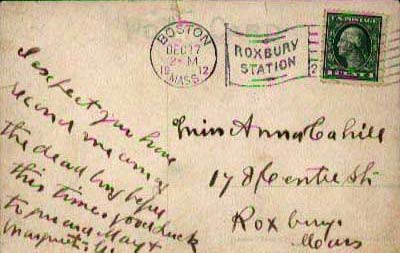 BOSTON
DEC 17
2 - M
19 12
MASS.
ROXBURY
STATION
2
U.S. POSTAGE
I expect you have
me
the dead long before
this time. good luck
to you and May
Miss Anna Cahill
178 Centre St.
Roxbury
Mass